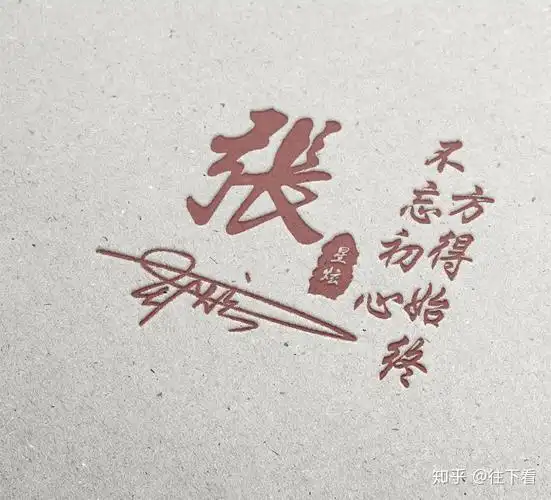 张
星炫
不忘初心
方得始终
知乎 @往下看